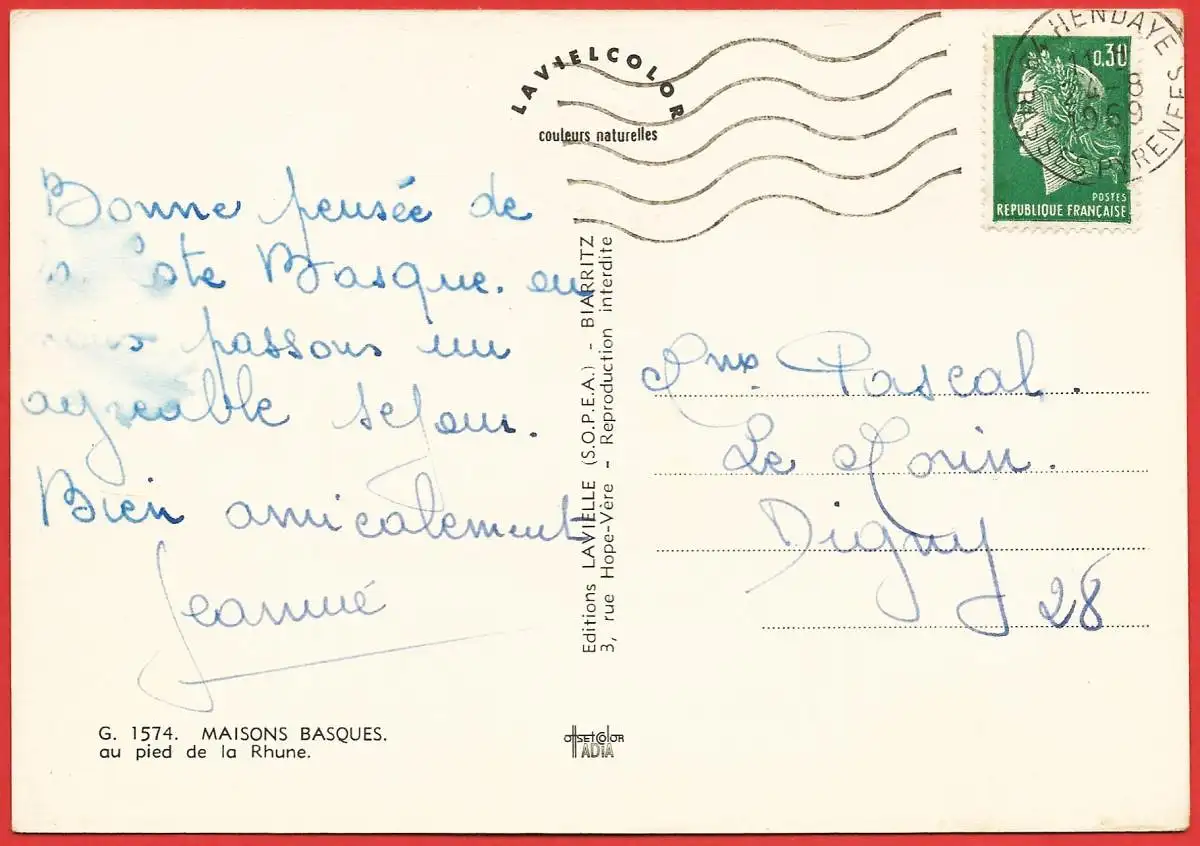 LAVIELCOLOR
couleurs naturelles
64 HENDAYE
11 H
4-8
1969
BASSES PYRENEES
0,30
POSTES
REPUBLIQUE FRANÇAISE
Bonne pensée de
la Côte Basque. ou
nous passons un
agréable séjour.
Bien amicalement
Jeanine
Pascal.
Le
Digny
28
Editions LAVIELLE (S.O.P.E.A.) - BIARRITZ
3, rue Hope-Vère - Reproduction interdite
G. 1574. MAISONS BASQUES.
au pied de la Rhune.
OFFSETCOLOR
IADIA